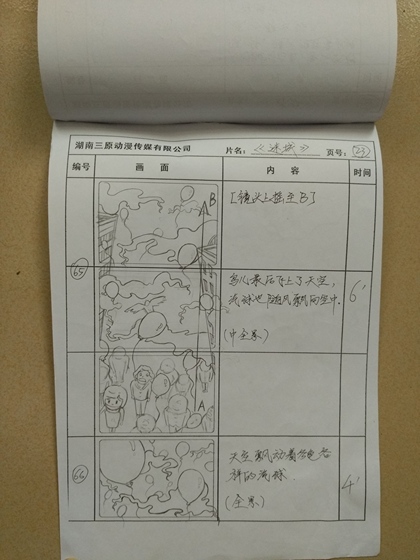 湖南三原动漫传媒有限公司 片名：《迷城》 页号：23
编号 画面 内容 时间
B
[镜头上摇至B]
A
65
鸟儿最后飞上了天空，
气球也随风飘向空中.
(中全景)
6'
A
66
天空飘动着各
样的气球.
(全景)
4'